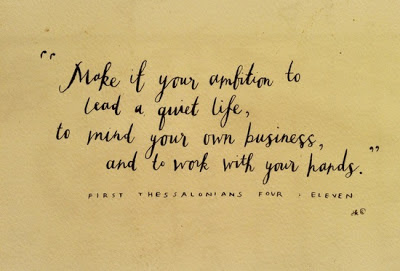 “Make it your ambition to
lead a quiet life,
to mind your own business,
and to work with your hands.”
FIRST THESSALONIANS FOUR · ELEVEN